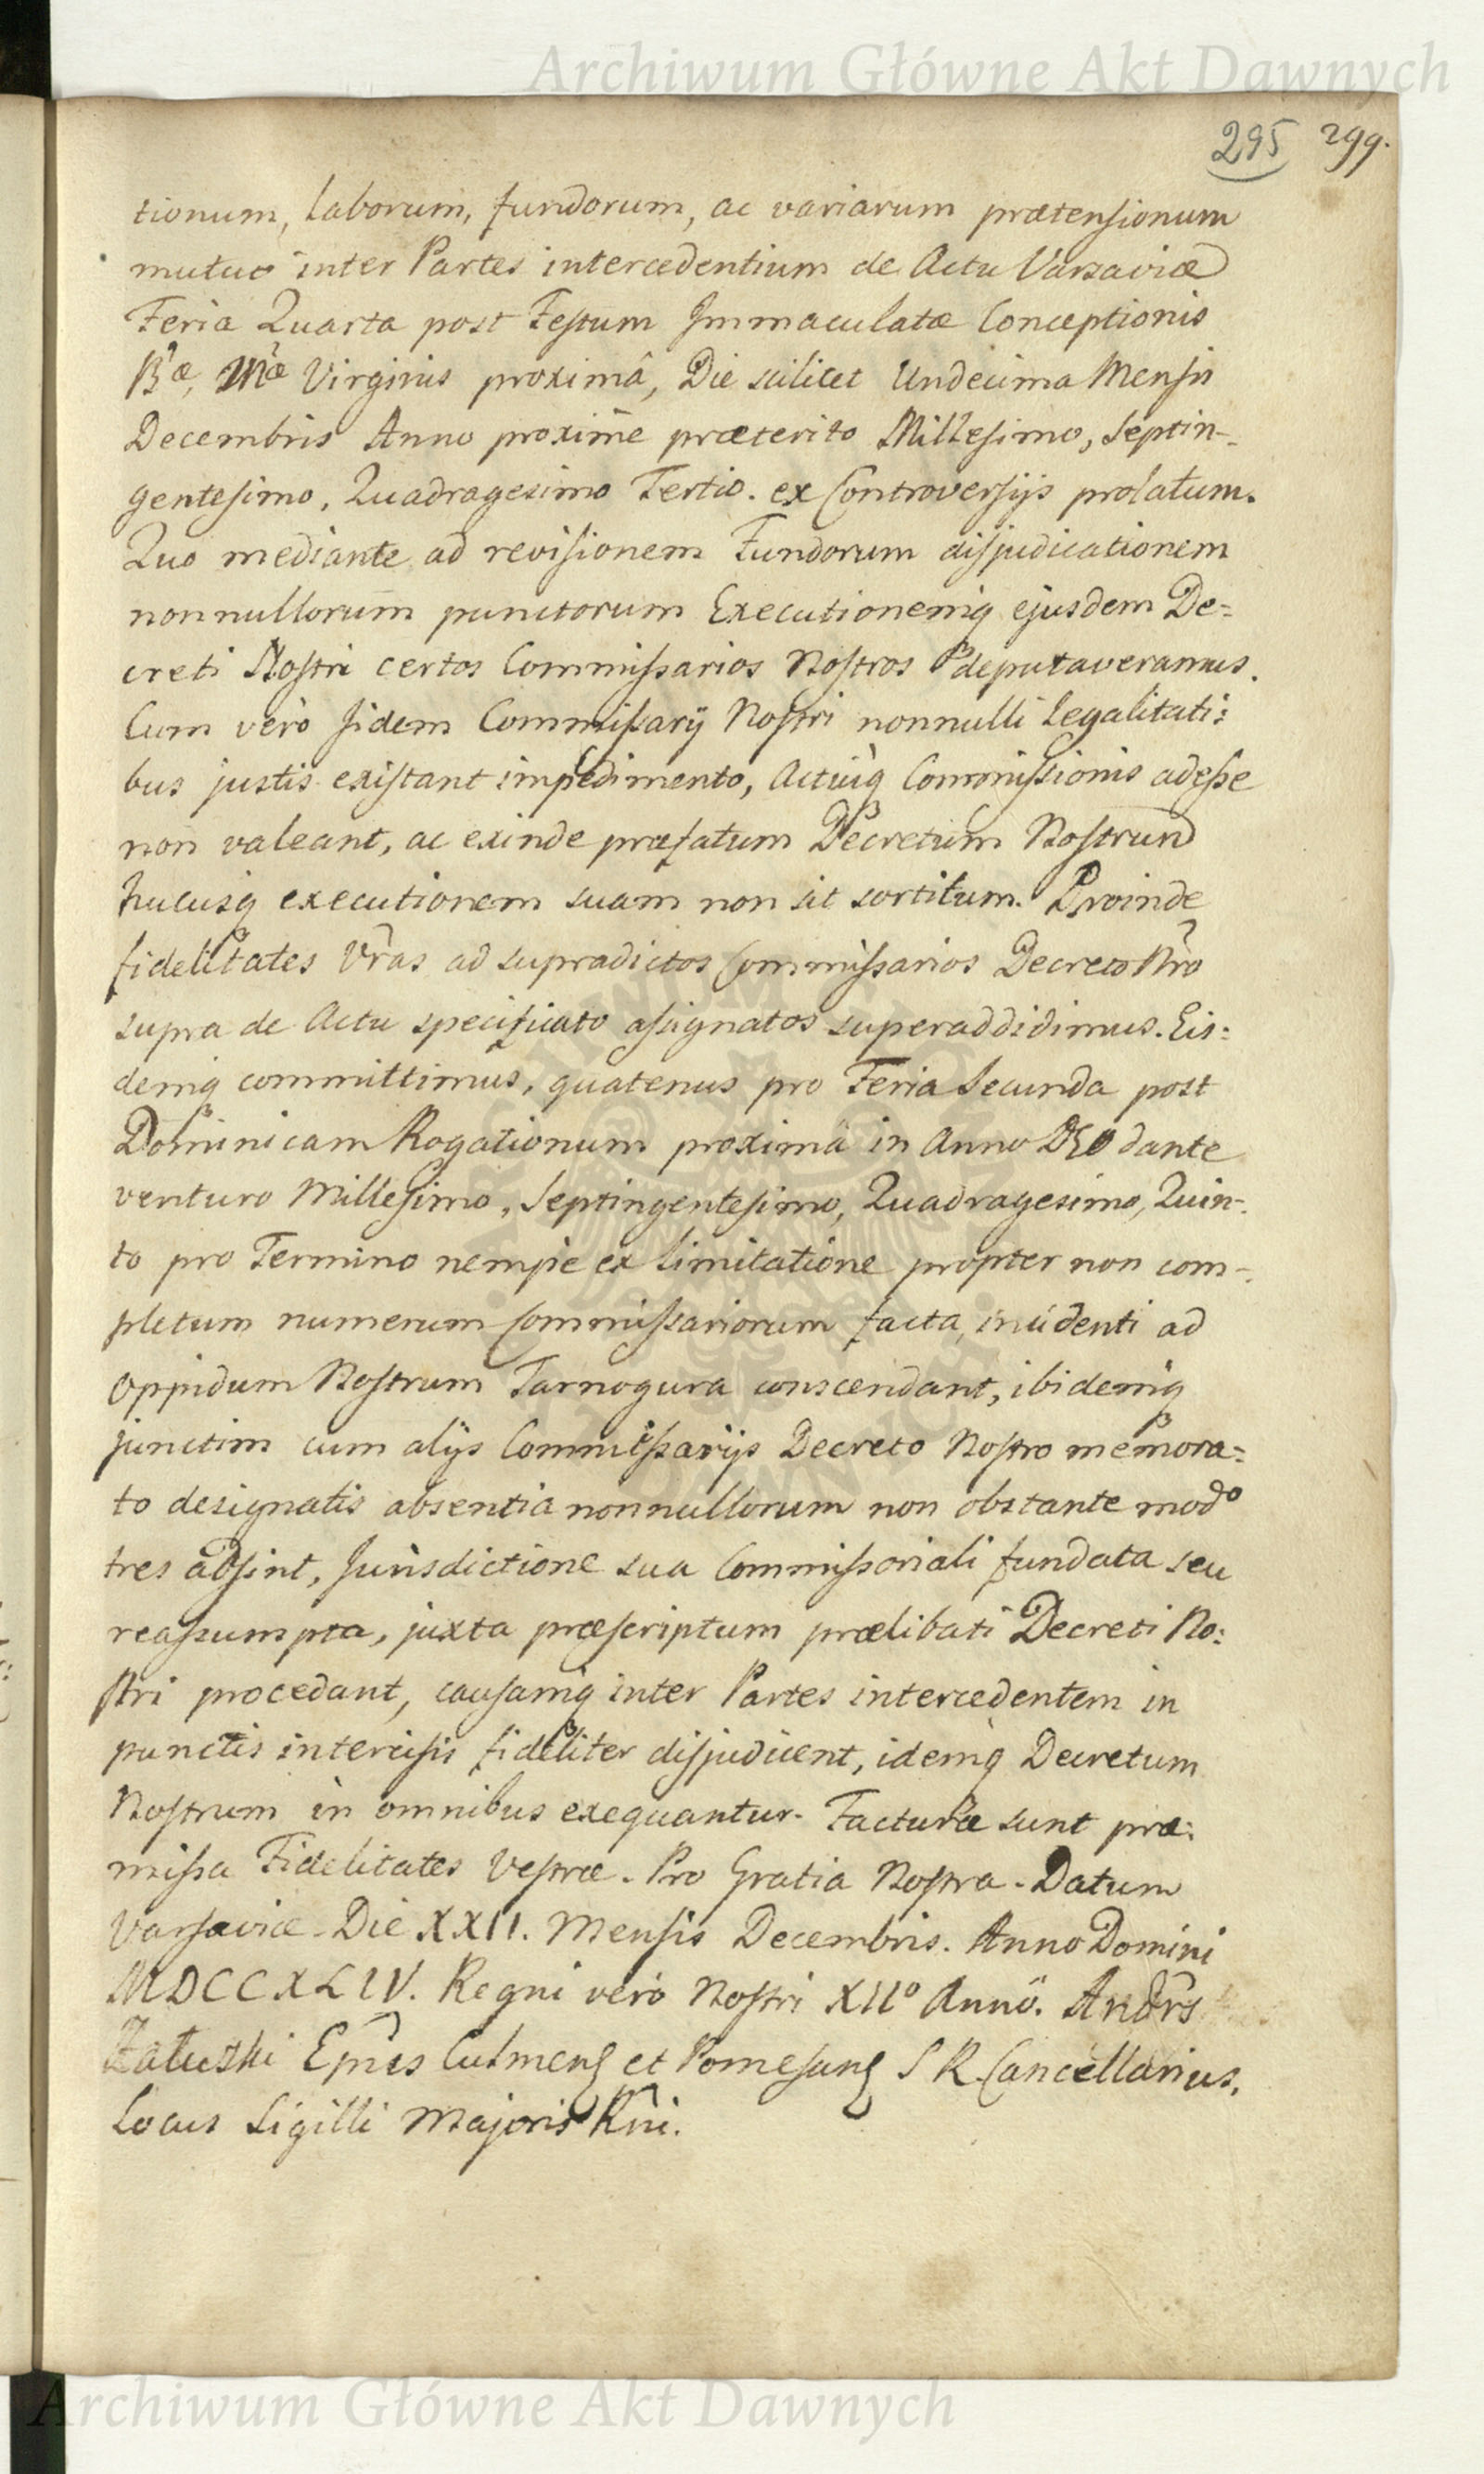 Archiwum Główne Akt Dawnych
295 299.
tionum, Laborum, fundorum, ac variarum prætensionum
mutuo inter Partes intercedentium de Actu Varsaviæ
Feria Quarta post Festum Immaculatæ Conceptionis
Bæ, Mæ Virginis proximâ, Die scilicet Undecima Mensis
Decembris Anno proximè præterito Millesimo, Septin-
gentesimo, Quadragesimo Tertio. ex Controversijs prolatum.
Quo mediante ad revisionem Fundorum disjudicationem
nonnullorum punctorum Executionemq ejusdem De=
creti Nostri certos Commissarios Nostros deputaveramus.
Cum verò iidem Commissarij Nostri nonnulli Legalitati=
bus justis existant impedimento, Actuiq Commissionis adesse
non valeant, ac exinde præfatum Decretum Nostrum
hucusq executionem suam non sit sortitum. Proinde
fidelitates Vras ad supradictos Commissarios Decreto Nro
supra de Actu specificato assignatos superaddidimus. Eis=
demq committimus, quatenus pro Feria Secunda post
Dominicam Rogationum proximâ in Anno DEO dante
venturo Millesimo, Septingentesimo, Quadragesimo, Quin-
to pro Termino nempe ex limitatione propter non com-
pletum numerum Commissariorum facta, incidenti ad
Oppidum Nostrum Tarnogura conscendant, ibidemq
junctim cum alijs Commissarijs Decreto Nostro memora=
to designatis absentia nonnullorum non obstante modo
tres adsint, Jurisdictione sua Commissoriali fundata seu
reassumpta, juxta præscriptum prælibati Decreti No=
stri procedant, causamq inter Partes intercedentem in
punctis intercisis fideliter disjudicent, idemq Decretum
Nostrum in omnibus exequantur. Facturæ sunt præ=
missa Fidelitates Vestræ. Pro Gratia Nostra. Datum
Varsaviæ Die XXII. Mensis Decembris. Anno Domini
MDCCXLIV. Regni verò Nostri XIIº Annô. Andrs
Załuski Epus Culmens et Pomesans S R Cancellarius.
Locus Sigilli Majoris Rni.
Archiwum Główne Akt Dawnych